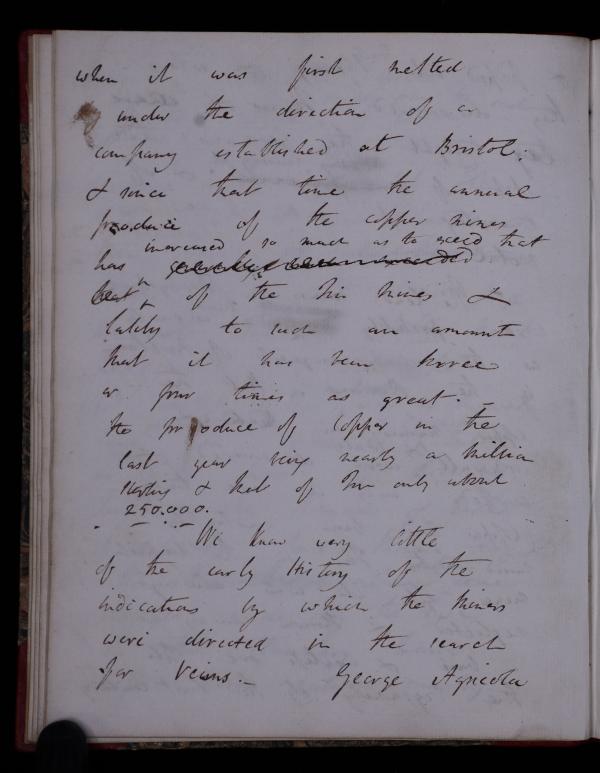 when it was first melted
under the direction of a
company established at Bristol;
& since that time the annual
produce of the copper mines
increased so much as to exceed that
has
of the Tin mines &
lately to such an amount
that it has been three
or four times as great. _
the produce of Copper in the
last year being nearly a million
sterling & that of Tin only about
250.000.
We know very little
of the early History of the
indications by which the Miners
were directed in the search
for Veins. _ George Agricola